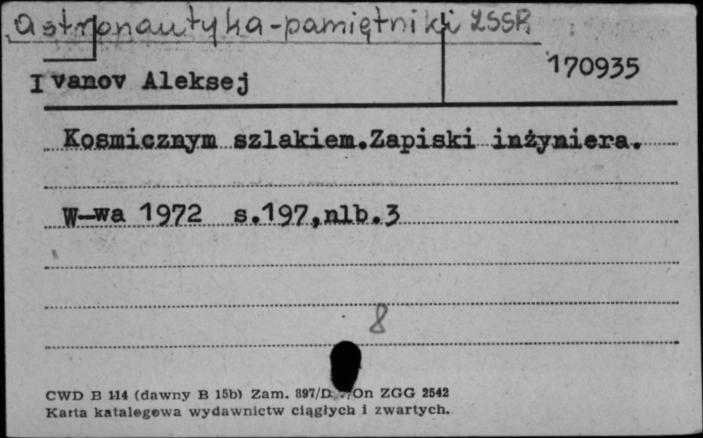 Astronautyka-pamiętniki ZSSR
170935
Ivanov Aleksej
Kosmicznym szlakiem.Zapiski inżyniera.
W-wa 1972 s.197,nlb.3
8
CWD B 114 (dawny B 15b) Zam. 897/D On ZGG 2542
Karta katalegewa wydawnictw ciągłych i zwartych.